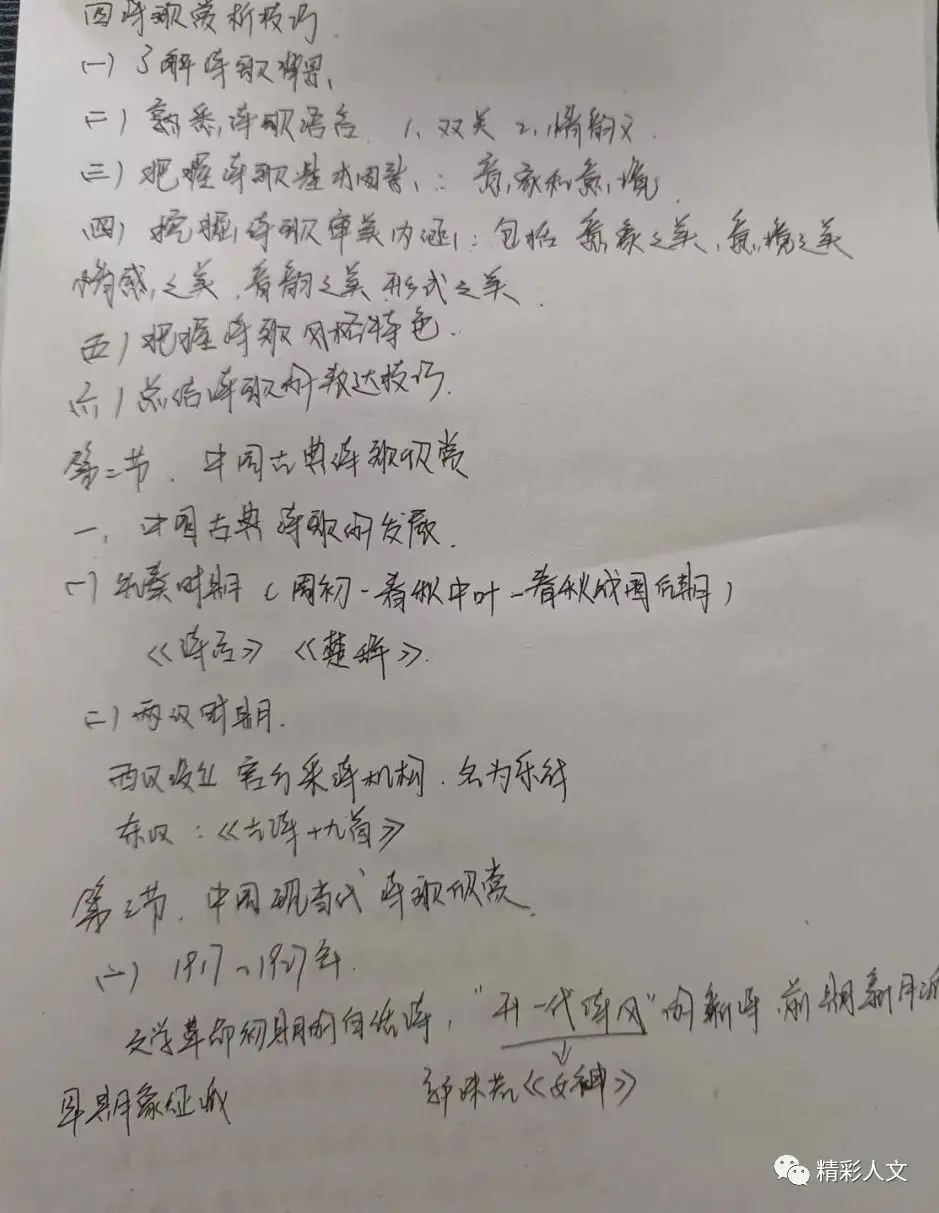 四诗歌赏析技巧
(一)了解诗歌背景、
(二)熟悉诗歌语言 1、双关 2、情韵义.
(三)把握诗歌基本因素:意象和意境
(四)挖掘诗歌审美内涵:包括意象之美、意境之美
情感之美、音韵之美、形式之美.
(五)把握诗歌风格特色.
(六)总结诗歌的表达技巧.
第二节. 中国古典诗歌欣赏
一、中国古典诗歌的发展.
(一)先秦时期(周初-春秋中叶-春秋战国后期)
《诗经》《楚辞》.
(二)两汉时期.
西汉设立官方采诗机构.名为乐府
东汉:《古诗十九首》
第三节. 中国现当代诗歌欣赏.
(一)1917~1927年.
文学革命初期的白话诗,"开一代诗风"的新诗.前期新月派
早期象征派
郭沫若《女神》
精彩人文